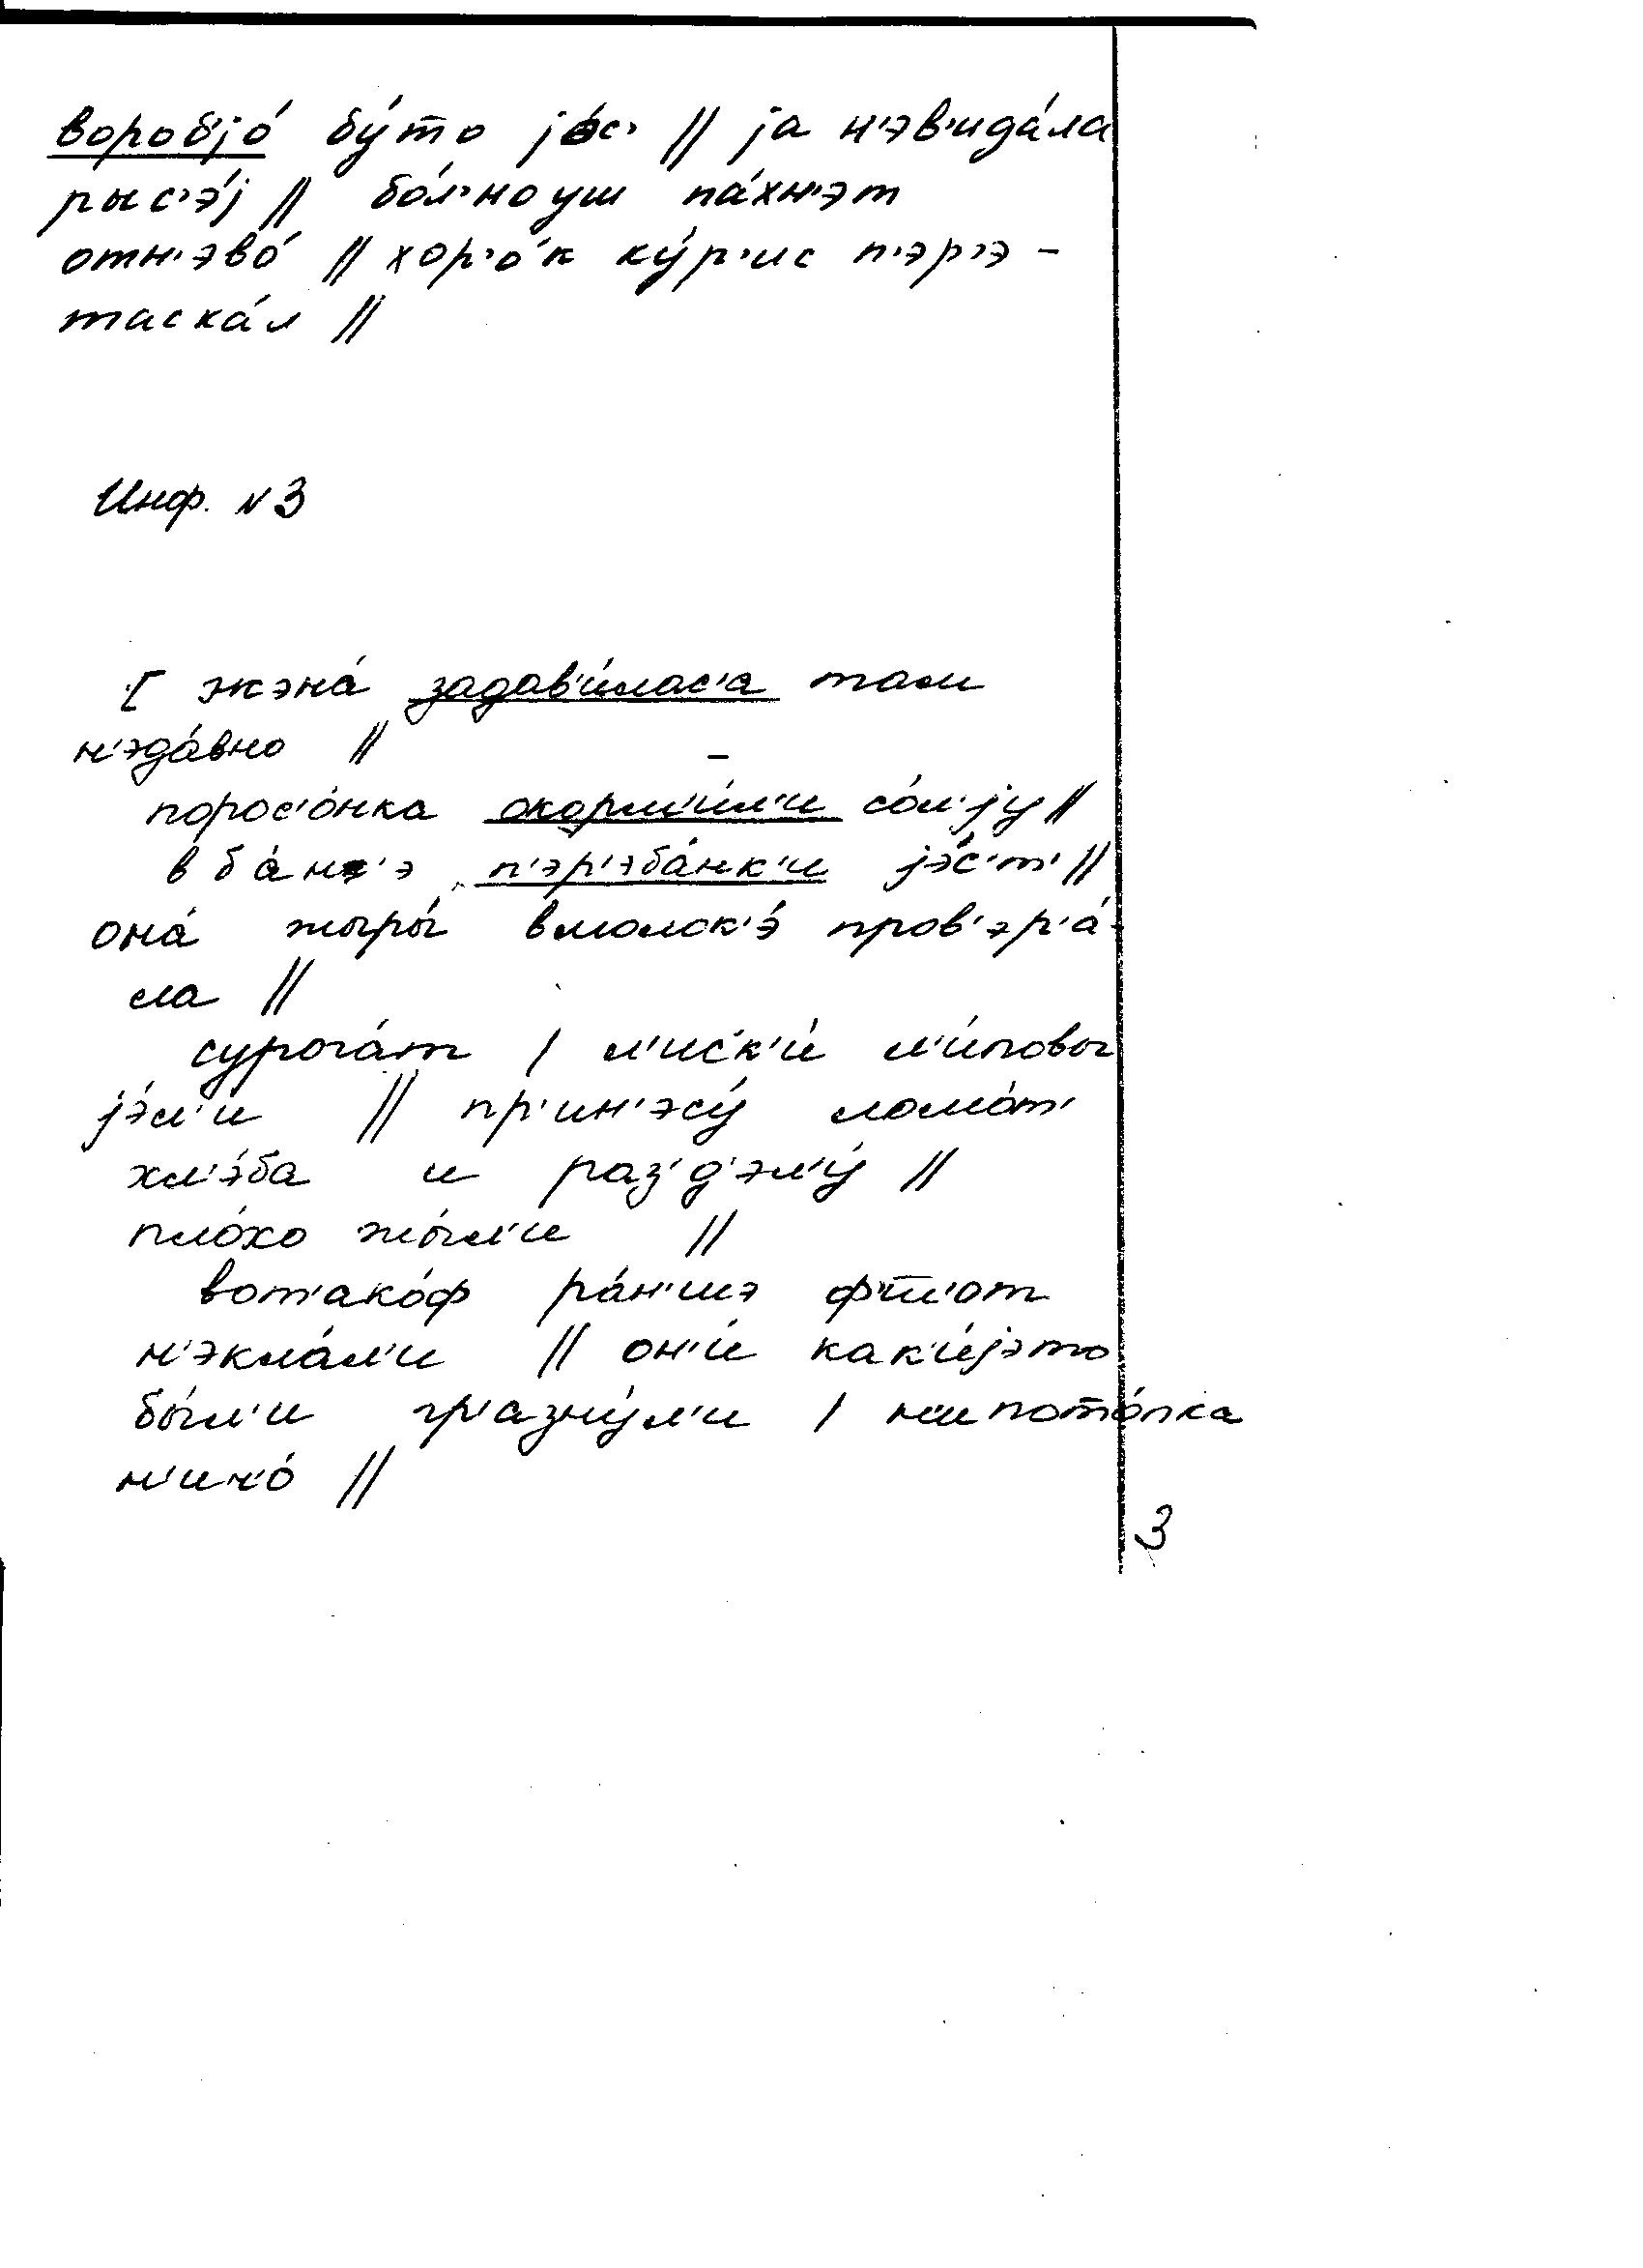 вороб'jо́ бу́то jэ́с' // jа н'эв'ида́ла
рыс'э́j // бо́л'но уш па́хн'эт
отн'эво́ // хор'о́к ку́р'ис п'эр'э -
таска́л //
Инф. N 3
[ жэна́ задав'и́лас'а там
н'эда́вно //
порос'о́нка окорм'и́л'и со́л'jу //
в ба́н'э п'эр'эба́нк'и jэ́с'т' //
она́ жыры́ вмолок'э́ пров'эр'а́-
ла //
сурога́т / л'иск'и́ л'и́повы
jэ́л'и // пр'ин'эсу́ ломо́т'
хл'э́ба и раз'д'эл'у́ //
пло́хо жы́л'и //
вот'ако́ф ра́н'шэ
н'экла́л'и // он'и́ как'и́jэто
бы́л'и гр'азну́л'и / пото́пка
н'ич'о́ //
3